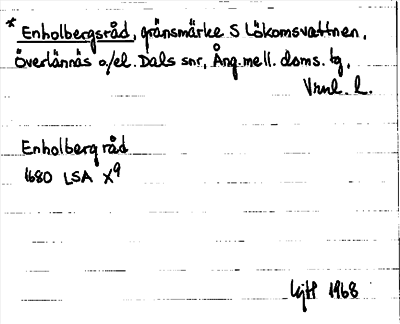 * Enholbergsråd, gränsmärke S Lökomsvattnen,
Överlännäs o/el. Dals snr, Ång. mell. doms. tg,
Vrml. L.
Enholberg råd
1680 LSA X9
1968